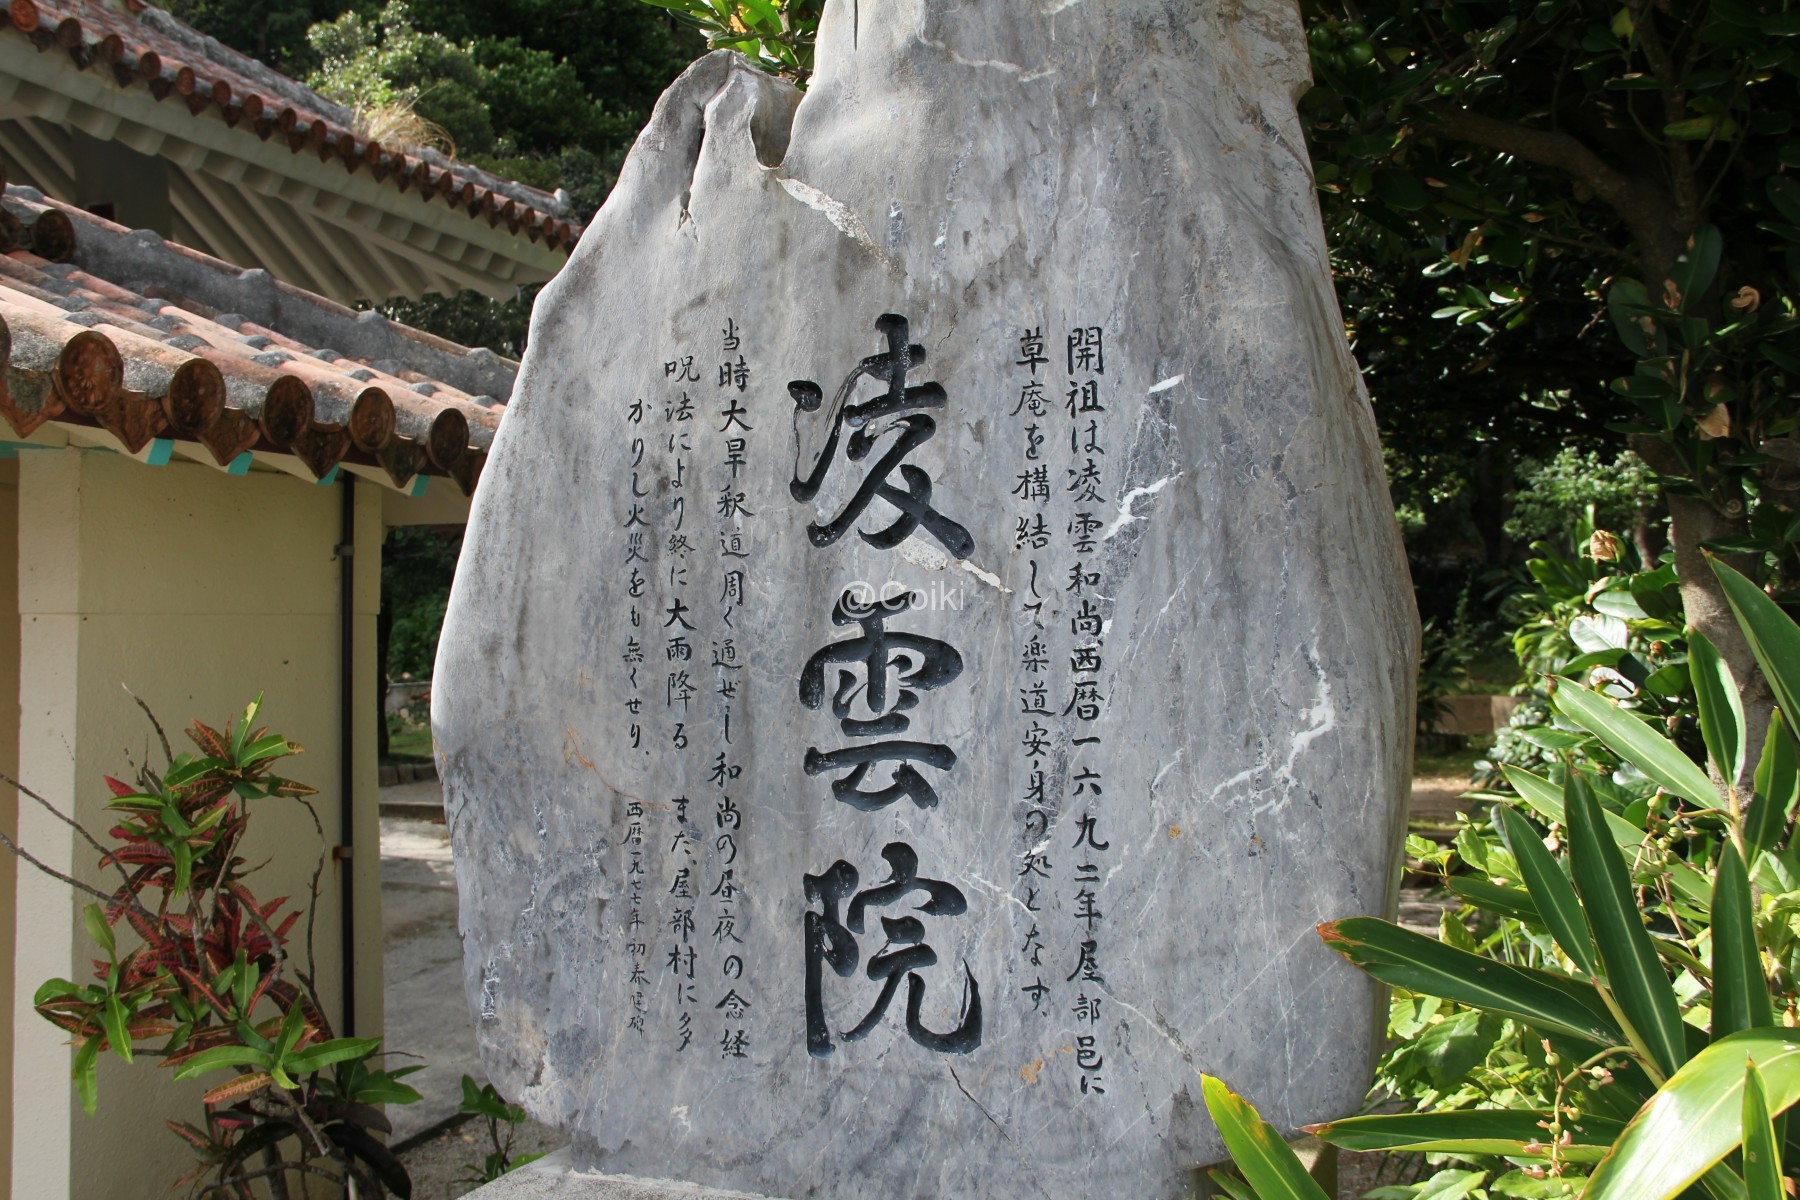 開祖は凌雲和尚西暦一六九二年屋部邑に
草庵を構結して楽道安身の処となす、
凌雲院
当時大旱釈道周く通ぜし和尚の昼夜の念経
呪法により終に大雨降る また、屋部村に多
かりし火災をも無くせり、
西暦一九七七年 初春 建碑
@Coiki